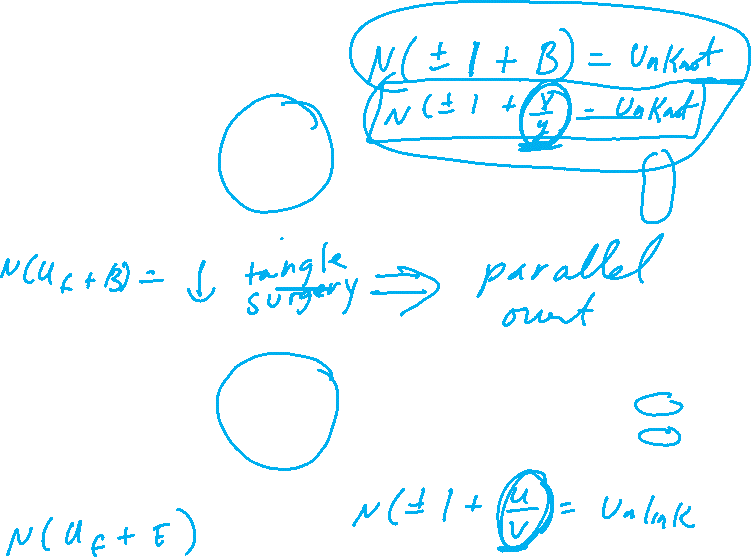 N(± 1 + B) = UnKnot
N(± 1 + x/y = UnKnot
N(U_f + B) = ↓ tangle surgery ⇒ parallel
orient
N(± 1 + u/v = Unlink
N(U_f + E)